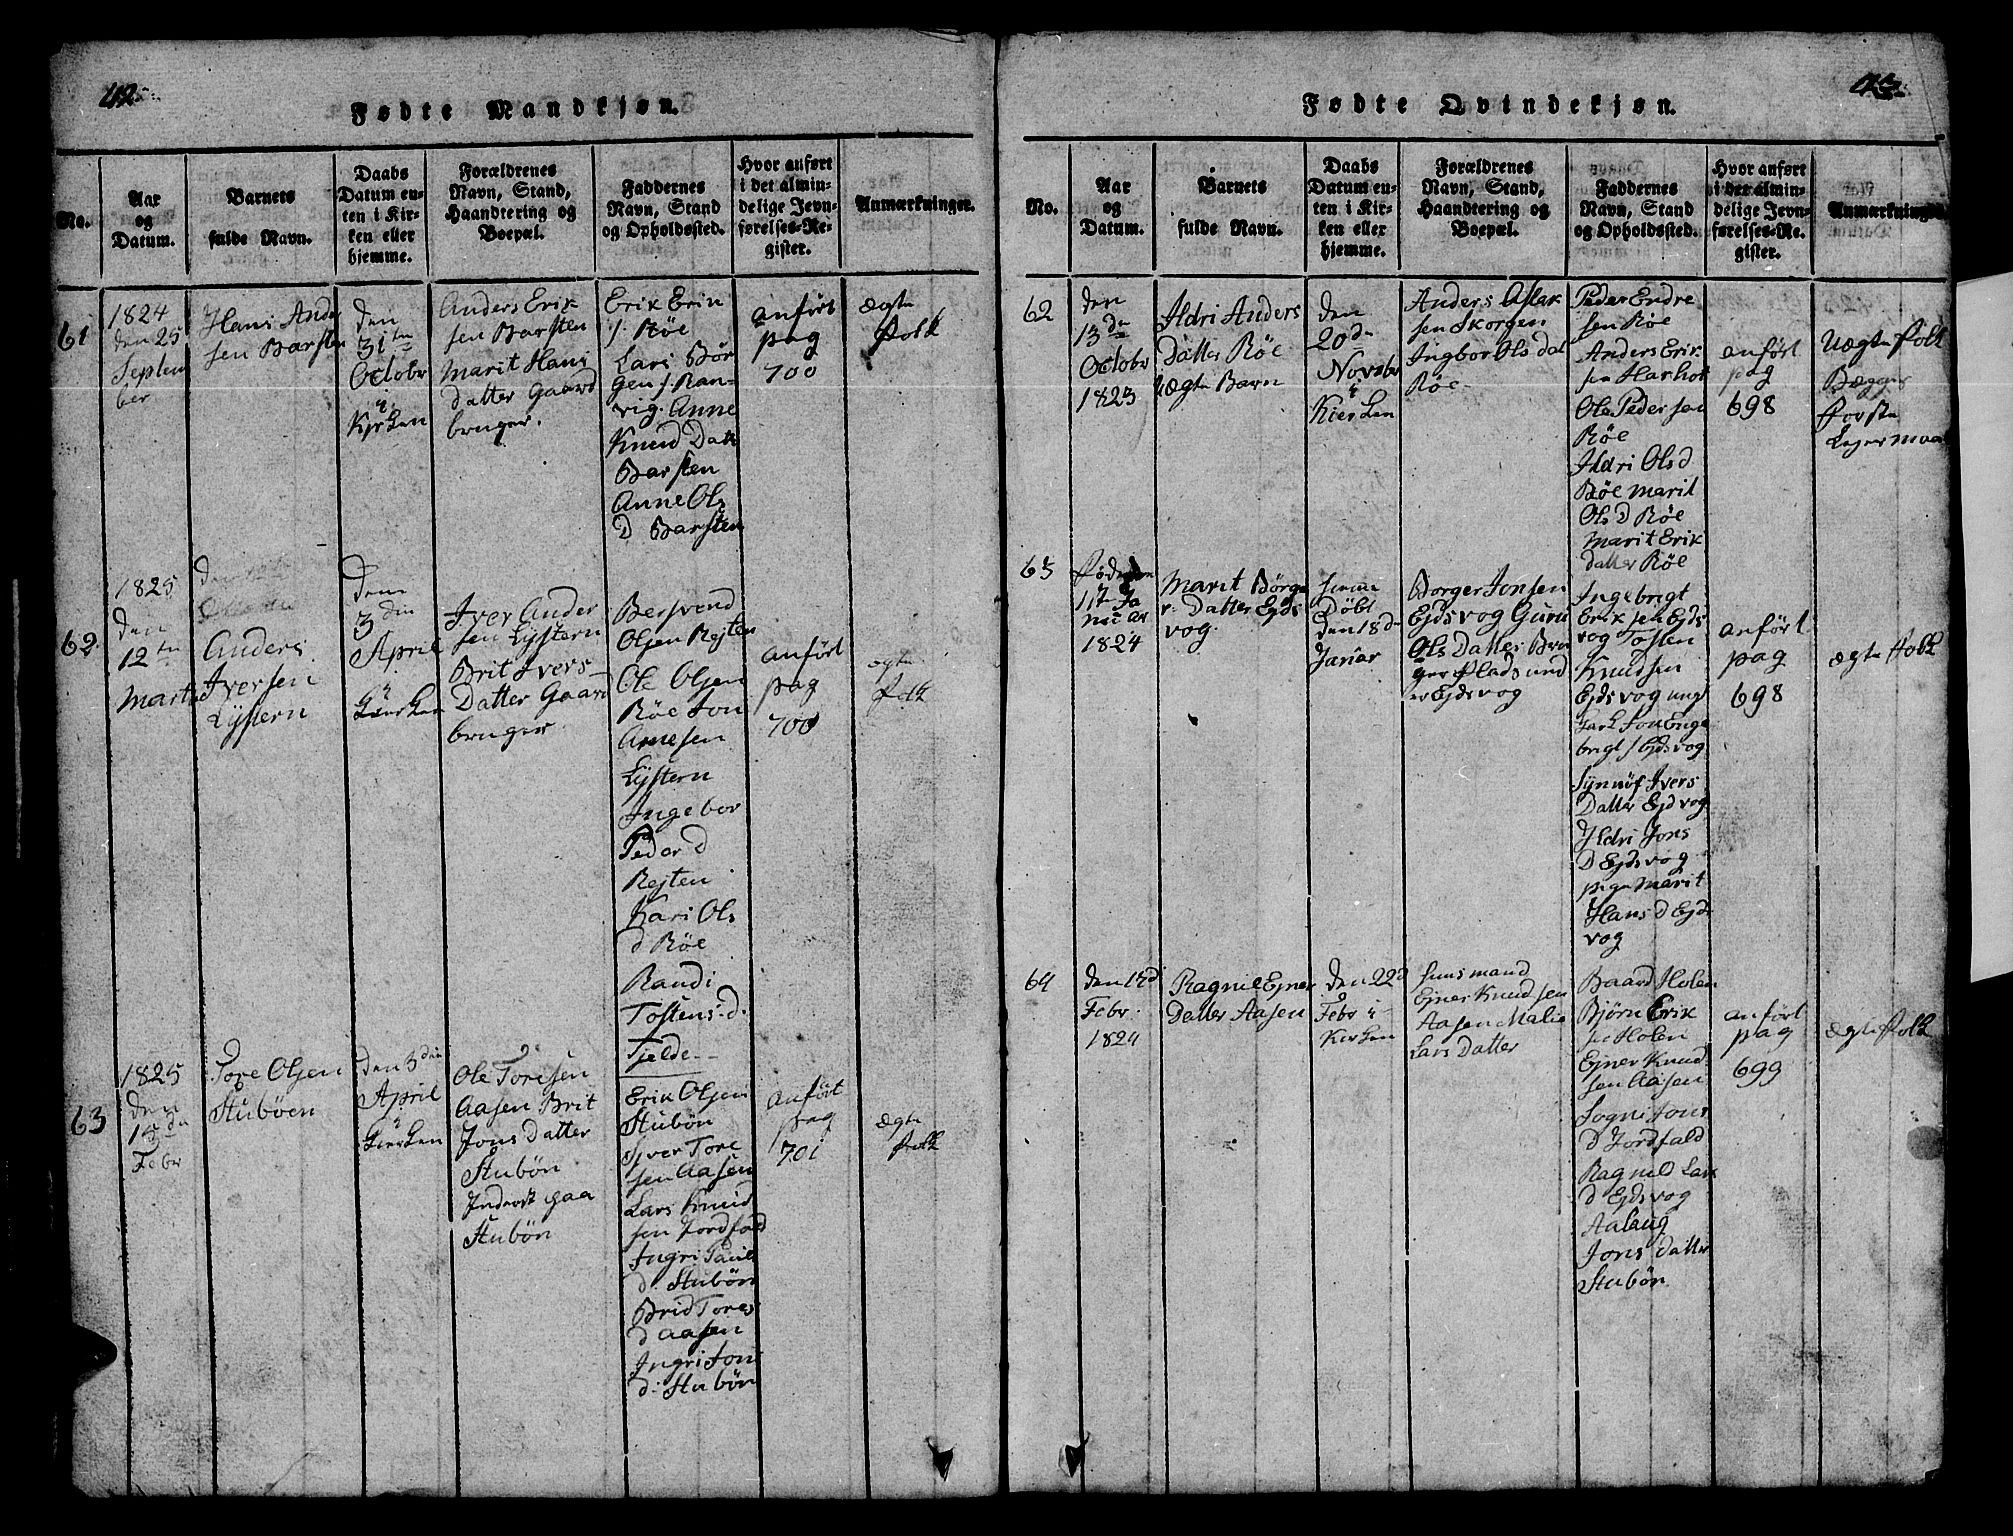 42
Fødte Mandkjøn.
No.
Aar
og
Datum.
Barnets
fulde Navn.
Daabs
Datum en-
ten i Kir-
ken eller
hjemme.
Forældrenes
Navn, Stand,
Haandtering og
Boepæl.
Faddernes
Navn, Stand
og Opholdssted.
Hvor anført
i det almin-
delige Jevn-
førelses-Re-
gister.
Anmærkninger.
61
1824
den 25
Septem
ber
Hans Ander
sen Barsten
den
31 te
Octobr
i
Kirken
Anders Erik
sen Barsten
Marit Hans
datter Gaard
bruger.
Erik Erik
s. Röe
Lars Bör
gen s. Ran-
vig. Anne
Knud Datt
Barsten
Anne Ols
D Barsten
anført
pag
700
ægte
Folk
62
1825
den
12te
Marts
Anders
Iversen
Lÿstern
Den
3 die
April
i
Iver Ander
sen Lÿstern
Brit Ivers
Datter Gaard
bruger
Bersvend
Olsen Rejten
Ole Olsen
Röe Jon
Arnesen
Lÿstern
Ingebor
Peder d
Rejten
Kari Ols
d Röe
Randi
Tostens. d.
Tjelde
anført
pag
700
ægte
Folk
63
1825
den
Febr
Tore Olsen
Stuböen
den 3 die
April
i
Ole Toresen
Aasen Brit
Jons Datter
Stubön
paa
Stubön
Erik Olsen
Stubön
Iver Tore
sen Aasen
Lars Knud
sen Jordfald
Ingri Paul
d Stubön
Brid Tores
d Aasen
Ingri Jon
d. Stubön
anført
pag
701
ægte
Folk
43
Fødte Qvindekjøn.
No.
Aar
og
Datum.
Barnets
fulde Navn.
Daabs
Datum en-
ten i Kir-
ken eller
hjemme.
Forældrenes
Navn, Stand,
Haandtering og
Boepæl.
Faddernes
Navn, Stand
og Opholdssted.
Hvor anført
i det almin-
delige Jevn-
førelses-Re-
gister.
Anmærkninger
62
den
13 de
Octobr
1823
Ildri Anders
Datter Röe
Uægte Barn
den
20 d
Novebr
i
Kirken
Anders Aslak
sen Skorgen
Ingbor Ols dat
Röe
Peder Endre
sen Röe
Anders Erik
sen Harhol
Ole Pedersen
Röe
Ildri Ols d
Röe Marit
Ols D Röe
Marit Erik
datter Röe
anført
pag
698
Uægte Folk
Begges
Første
Lejermaal
63
Föd den
Ja
nuar
1824
Marit Börge
r. Datter Ejds
vog.
hjemme
Döbt
den 18 d
Januar
Borger Jonsen
Ejdsvog Guru
Ols Datter Bru
ger Plads und
er Ejdsvog
Ingebrigt
Eriksen Ejds
vog Tosten
Knudsen
Ejdsvog ung
Jon Enge
brigt s Ejdsvog
Synnöf Ivers
Datter Ejdvog
Ildri Jons
D Ejdsvog
pige Marit
Hans d Ejds
vog
anført
pag
698
ægte Folk
64
den 14 d
Febr.
1824
Ragnil Ejner
Datter Aasen
den 22 d
Febr i
Kirken
Huusmand
Ejner Knudsen
Aasen Malie
Lars Datter
Baard Holen
Björn Erik
sen Holen
Ejner Knud
sen Aasen
Sogni Jons
d Jordfald
Ragnild Lars
d Ejdsvog
Aalaug
Jons Datter
Stubön
anført
pag
699
ægte Folk